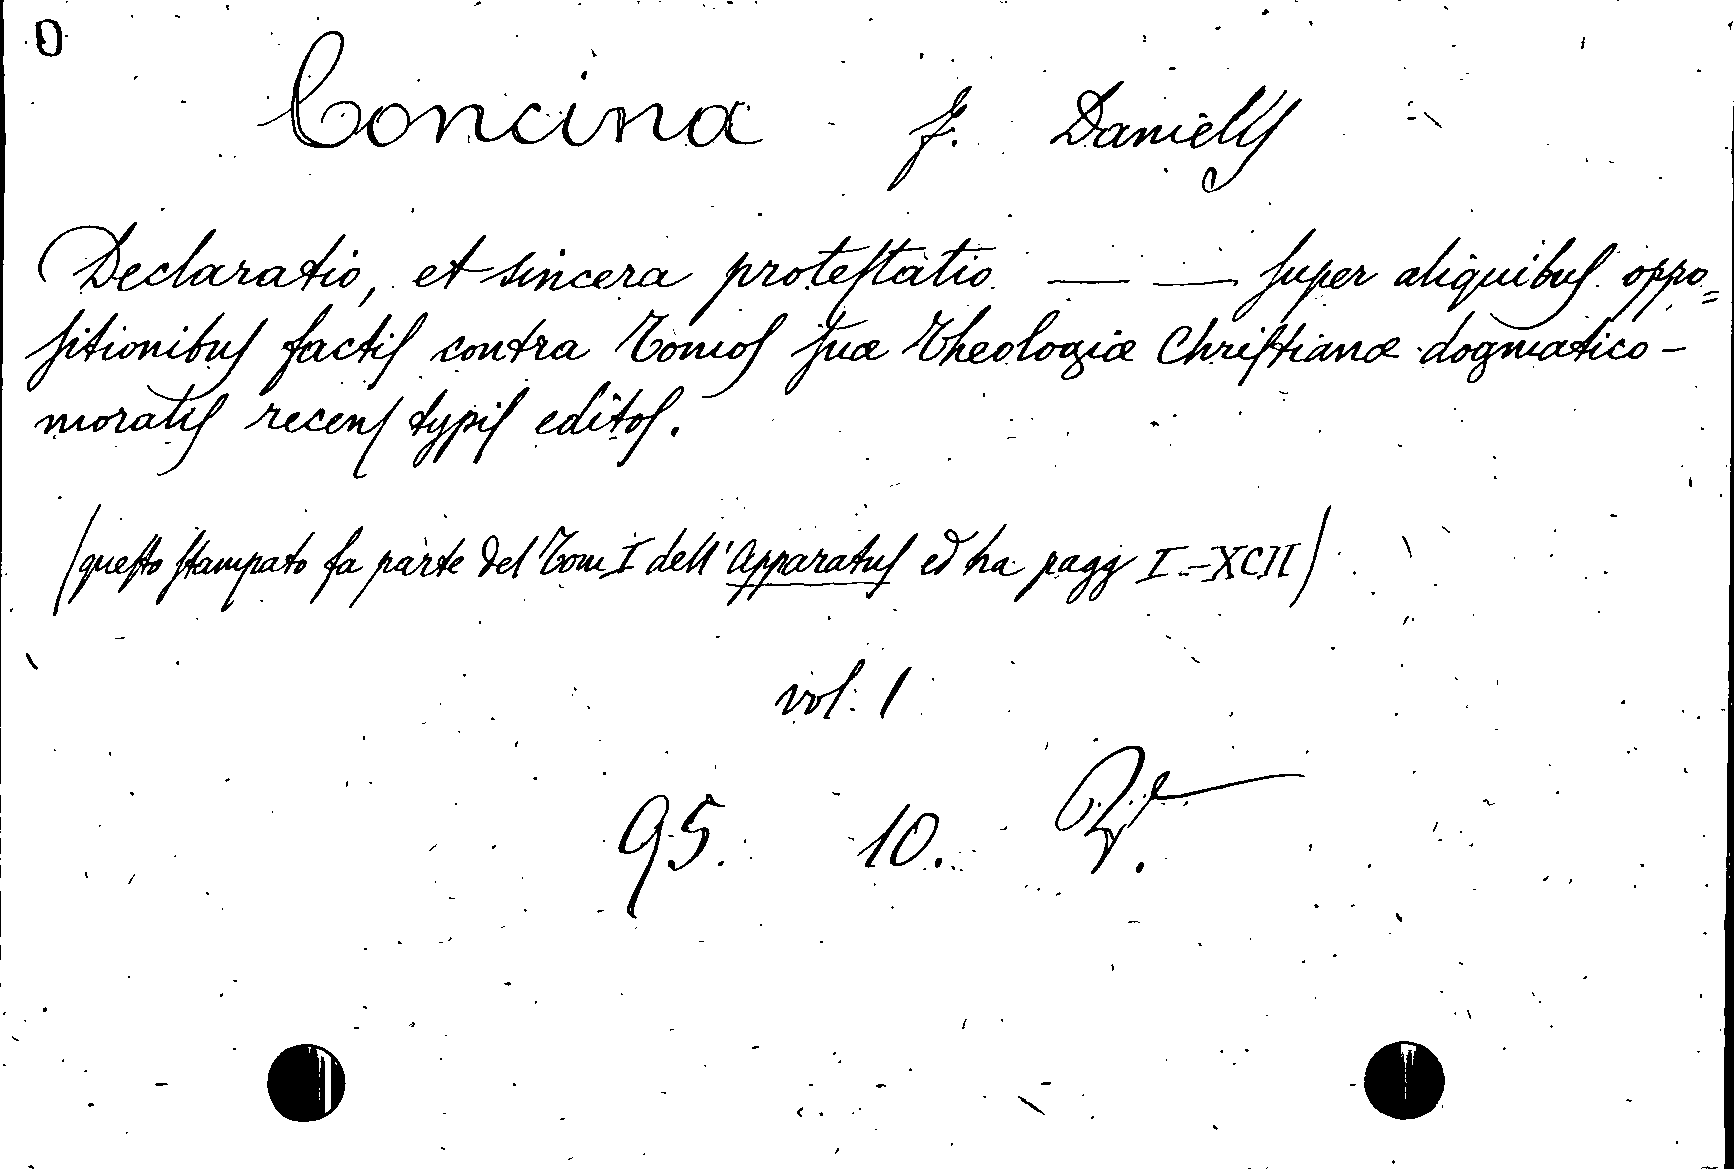 O
Concina f. Danielis
Declaratio, et sincera protestatio — — super aliquibus oppo=
sitionibus factis contra Tomos suæ Theologiæ Christianæ dogmatico-
moralis recens typis editos.
(questo stampato fa parte del Tom I dell'Apparatus ed ha pagg I-XCII)
vol. 1
95. 10.